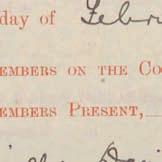 day of Febr
EMBERS ON THE CO
EMBERS PRESENT,